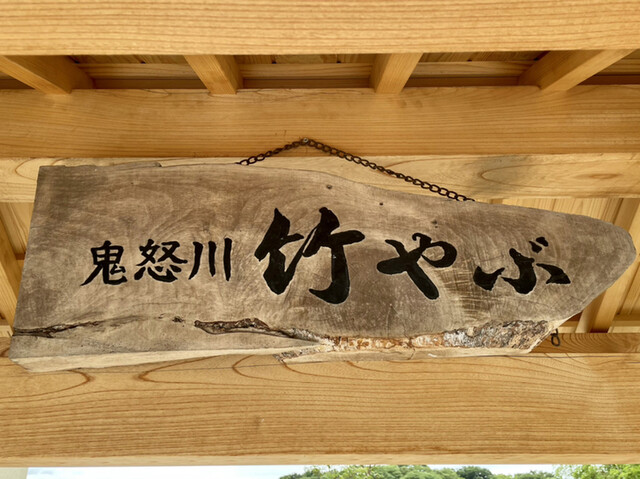 鬼怒川 竹やぶ